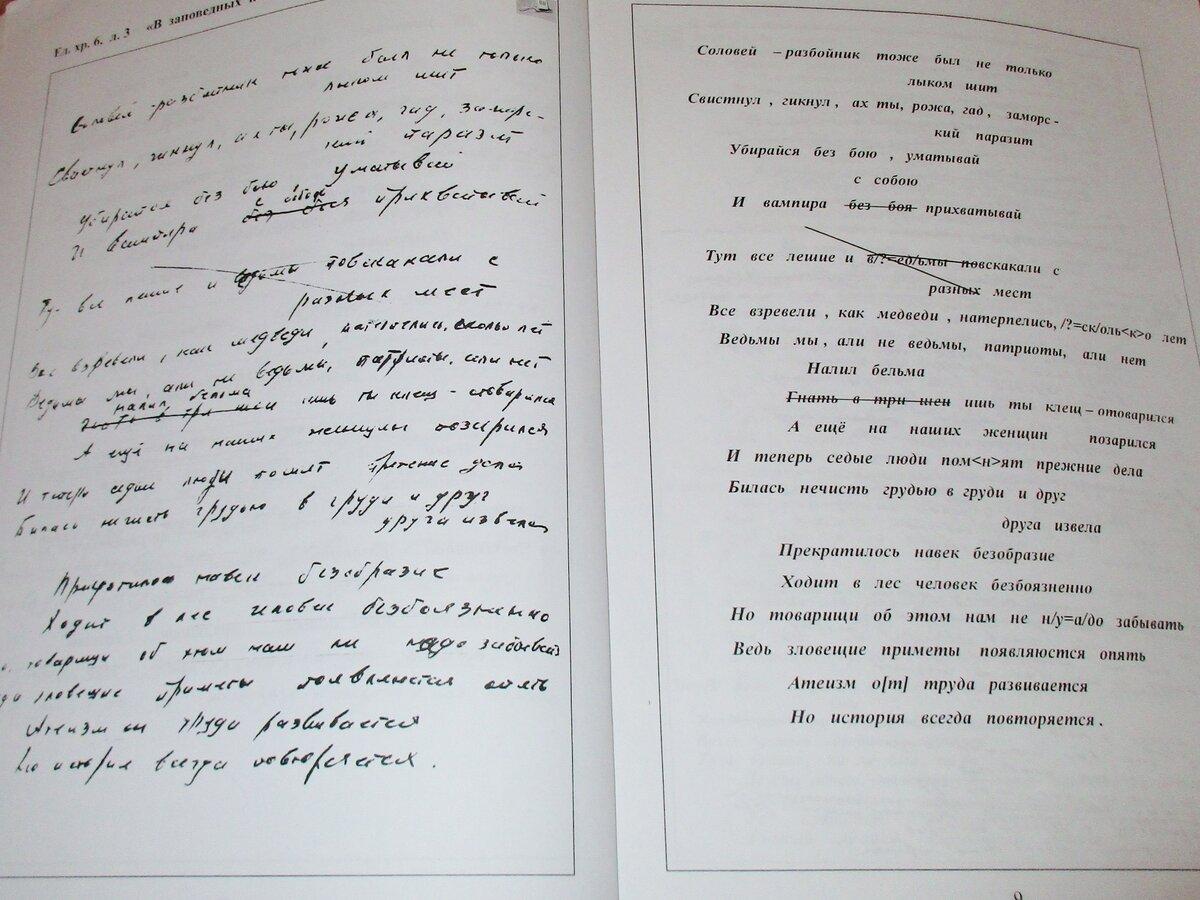 Ед. хр. 6. л. 3 «В заповедных и
Соловей -разбойник тоже был не только
лыком шит
Свистнул, гикнул, ах ты, рожа, гад, заморс-
кий паразит
Убирайся без бою, уматывай
с собою
И вампира без боя прихватывай
Тут все лешие и ведьмы повскакали с
разных мест
Все взревели, как медведи, натерпелись, сколько лет
Ведьмы мы, али не ведьмы, патриоты, али нет
налил бельма
Гнать в три шеи ишь ты клещ - отоварился
А ещё на наших женщин позарился
И теперь седые люди помят прежние дела
Билась нечисть грудью в груди и друг
друга извела
Прекратилось навек безобразие
Ходит в лес человек безбоязненно
товарищи об этом нам не надо забывать
зловещие приметы появляются опять
Атеизм от труда развивается
Но история всегда повторяется.
Соловей – разбойник тоже был не только
лыком шит
Свистнул , гикнул , ах ты, рожа, гад , заморс -
кий паразит
Убирайся без бою , уматывай
с собою
И вампира без боя прихватывай
Тут все лешие и в/?=ед/ьмы повскакали с
разных мест
Все взревели , как медведи , натерпелись, /?=ск/оль<к>о лет
Ведьмы мы , али не ведьмы, патриоты, али нет
Налил бельма
Гнать в три шеи ишь ты клещ – отоварился
А ещё на наших женщин позарился
И теперь седые люди пом<н>ят прежние дела
Билась нечисть грудью в груди и друг
друга извела
Прекратилось навек безобразие
Ходит в лес человек безбоязненно
Но товарищи об этом нам не н/у=а/до забывать
Ведь зловещие приметы появляюстся опять
Атеизм о[т] труда развивается
Но история всегда повторяется .